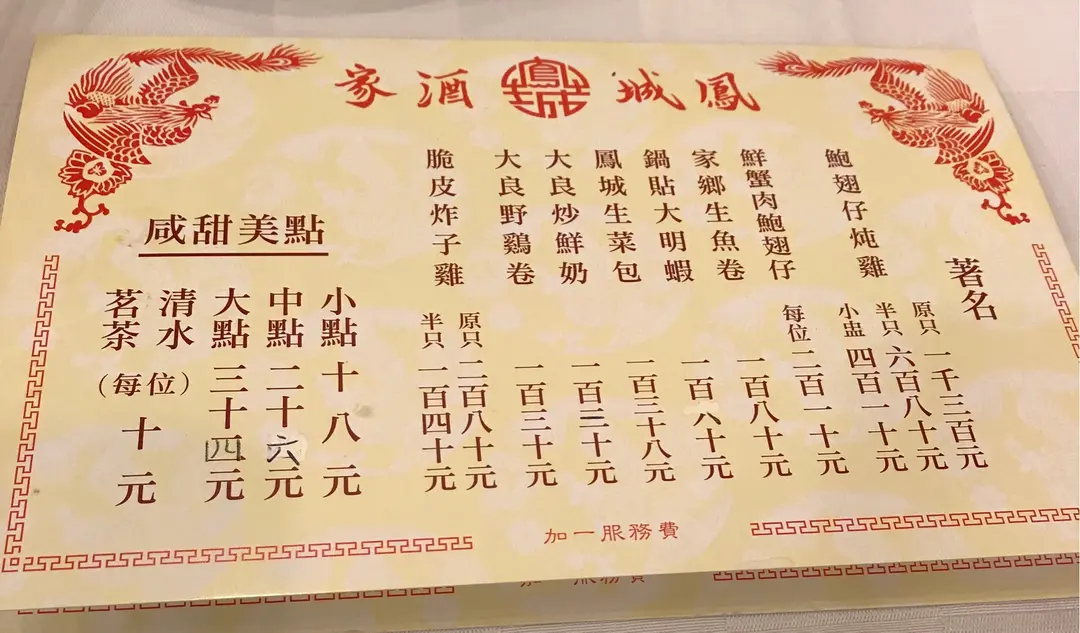 鳳城酒家
鳳城
著名
鮑翅仔炖雞
原只 一千三百元
半只 六百八十元
小盅 四百一十元
鮮蟹肉鮑翅仔 每位 二百一十元
家鄉生魚卷 一百八十元
鍋貼大明蝦 一百八十元
鳳城生菜包 一百三十八元
大良炒鮮奶 一百三十元
大良野鷄卷 一百三十元
脆皮炸子雞
原只 二百八十元
半只 一百四十元
咸甜美點
小點 十八元
中點 二十六元
大點 三十四元
清水
茗茶
(每位) 十元
加一服務費
加一服務費